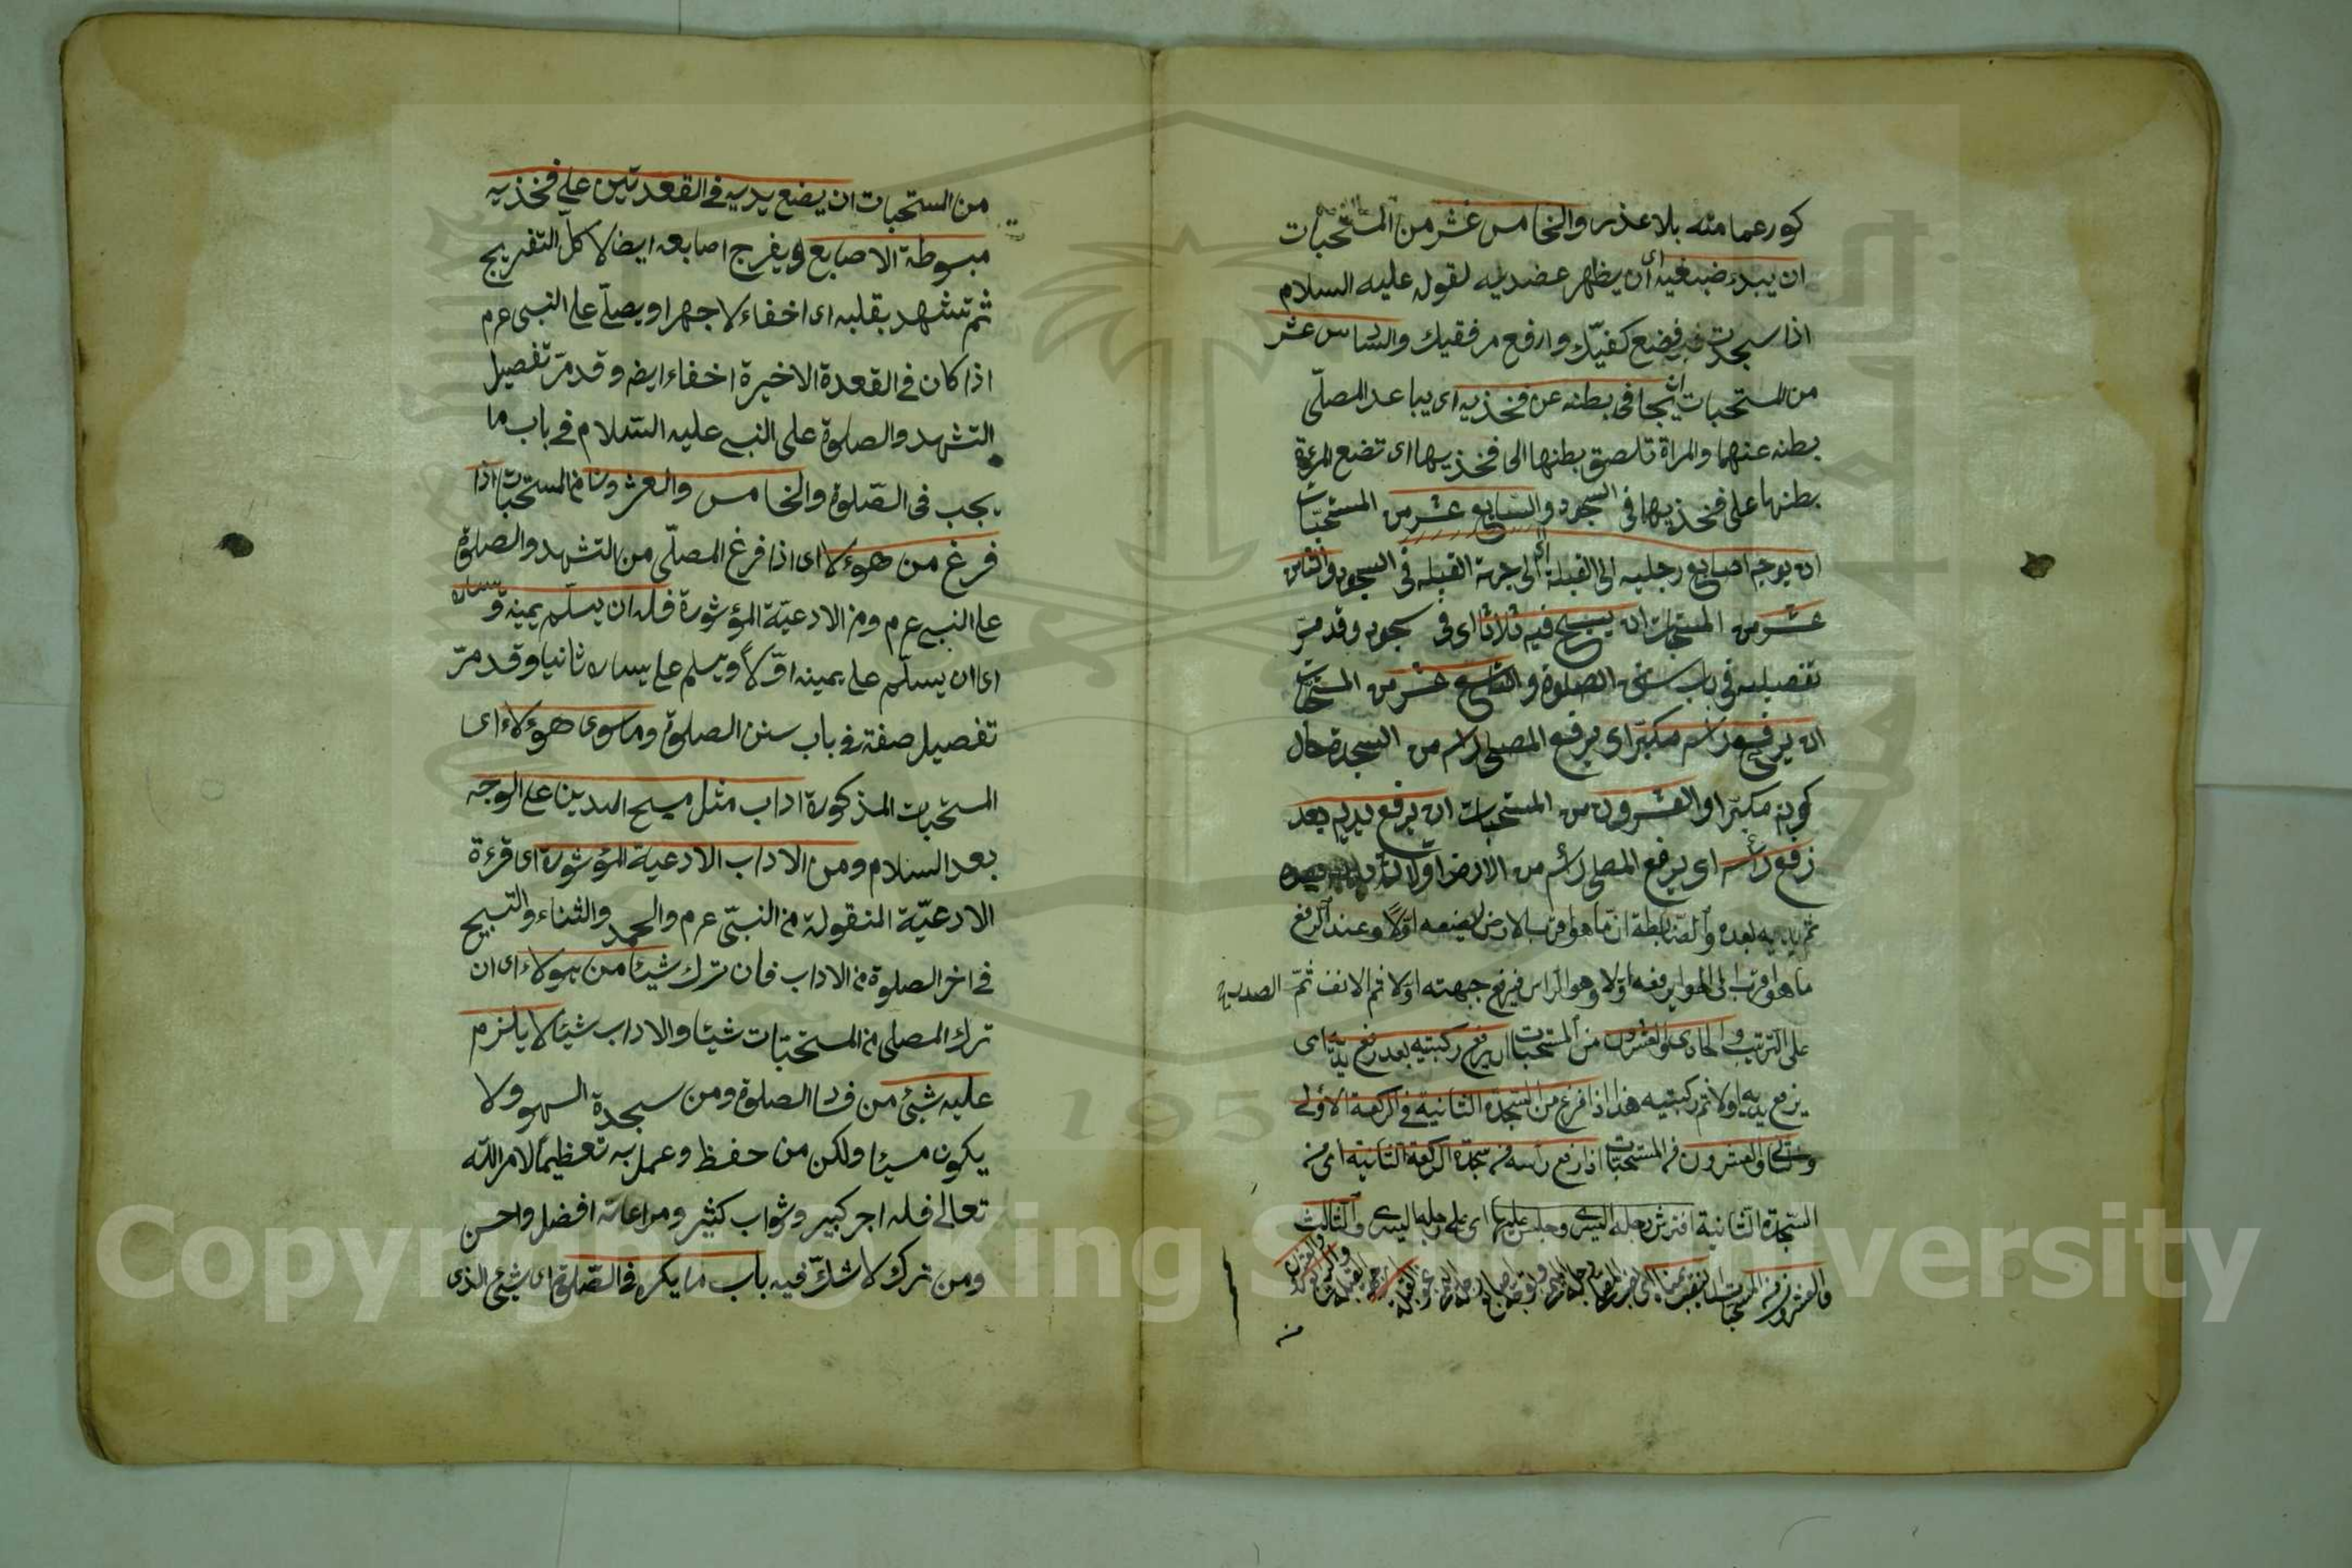 كور عمامته بلا عذر والخامس عشر من المستحبات
ان يبدء ضبعيه اى أن يظهر عضديه لقوله عليه السلام
اذا سجدت فضع كفيّك وارفع مرفقيك والسادس عشر
من المستحبات ان يجافى بطنه عن فخذيه اى يباعد المصلّى
بطنه عنهما والمراة تلصق بطنها الى فخذيها اى تضع المرءة
بطنها على فخذيها فى السجود والسابع عشر من المستحبّات
ان يوجه اصابع رجليه الى القبلة اى الى جهة القبلة فى السجود والثامن
عشر من المستحبات ان يسبح فيه ثلاثا اى فى سجوده وقد مرّ
تفصيله فى باب سنن الصلوة والتاسع عشر من المستحبات
ان يرفع رأسه مكبّرا اى يرفع المصلى رأسه من السجدة حال
كونه مكبّرا والعشرون من المستحبات ان يرفع يديه بعد
رفع رأسه اى يرفع المصلى رأسه من الارض اوّلا
ثم يديه بعده والضّابطة انّ ما هو اقرب بالارض يضعه اوّلاً وعند الرفع
ما هو اقرب الى الهواء يرفعه اوّلا وهو الرأس فيرفع جبهته اوّلا ثم الانف ثمّ
على الترتيب والحادى والعشرون من المستحبات ان يرفع ركبتيه بعد رفع يديه اى
يرفع يديه اولا ثم ركبتيه هذا اذا فرغ من السّجدة الثانية فى الركعة الاولى
والثانى والعشرون من المستحبّات اذا رفع رأسه من سجدة الركعة الثانية اى من
السّجدة الثانية افترش رجله اليسرى وجلس عليها اى على رجله اليسرى والثالث
والعشرون من المستحبات
من المستحبات ان يضع يديه فى القعدتين على فخذيه
مبسوطة الاصابع ويفرج اصابعه ايضا لا كلّ التفريج
ثم تشهد بقلبه اى اخفاء لا جهرا ويصلّى على النبى عرم
اذا كان فى القعدة الاخيرة اخفاء ايضه وقد مرّ تفصيل
التشهد والصلوة على النبى عليه السّلام فى باب ما
يجب فى الصّلوة والخامس والعشرون من المستحبات اذا
فرغ من هوءلا اى اذا فرغ المصلّى من التشهد والصلوة
على النبى عرم ومن الادعيّة المؤثورة فله ان يسلّم يمينه ويساره
اى ان يسلّم على يمينه اوّلاً ويسلم على يساره ثانيا وقد مرّ
تفصيل صفته فى باب سنن الصلوة وما سوى هؤلاء اى
المستحبات المذكورة اداب مثل مسح اليدين على الوجه
بعد السلام ومن الاداب الادعية المؤثورة اى قرءة
الادعيّة المنقولة من النبىّ عرم والحمد والثناء والتسبيح
فى اخر الصلوة من الاداب فان ترك شيئا من هولاء اى ان
ترك المصلى من المستحبّات شيئا والاداب شيئا لا يلزم
عليه شئ من فساد الصلوة ومن سجدة السهو ولا
يكون مسيئا ولكن من حفظ وعمل به تعظيمًا لامر اللّه
تعالى فله اجر كبير وثواب كثير ومراعاته افضل واحسن
ومن ترك لا شكّ فيه باب ما يكره فى الصّلوة اى شئ الذى
Copyright © King Saud University
195